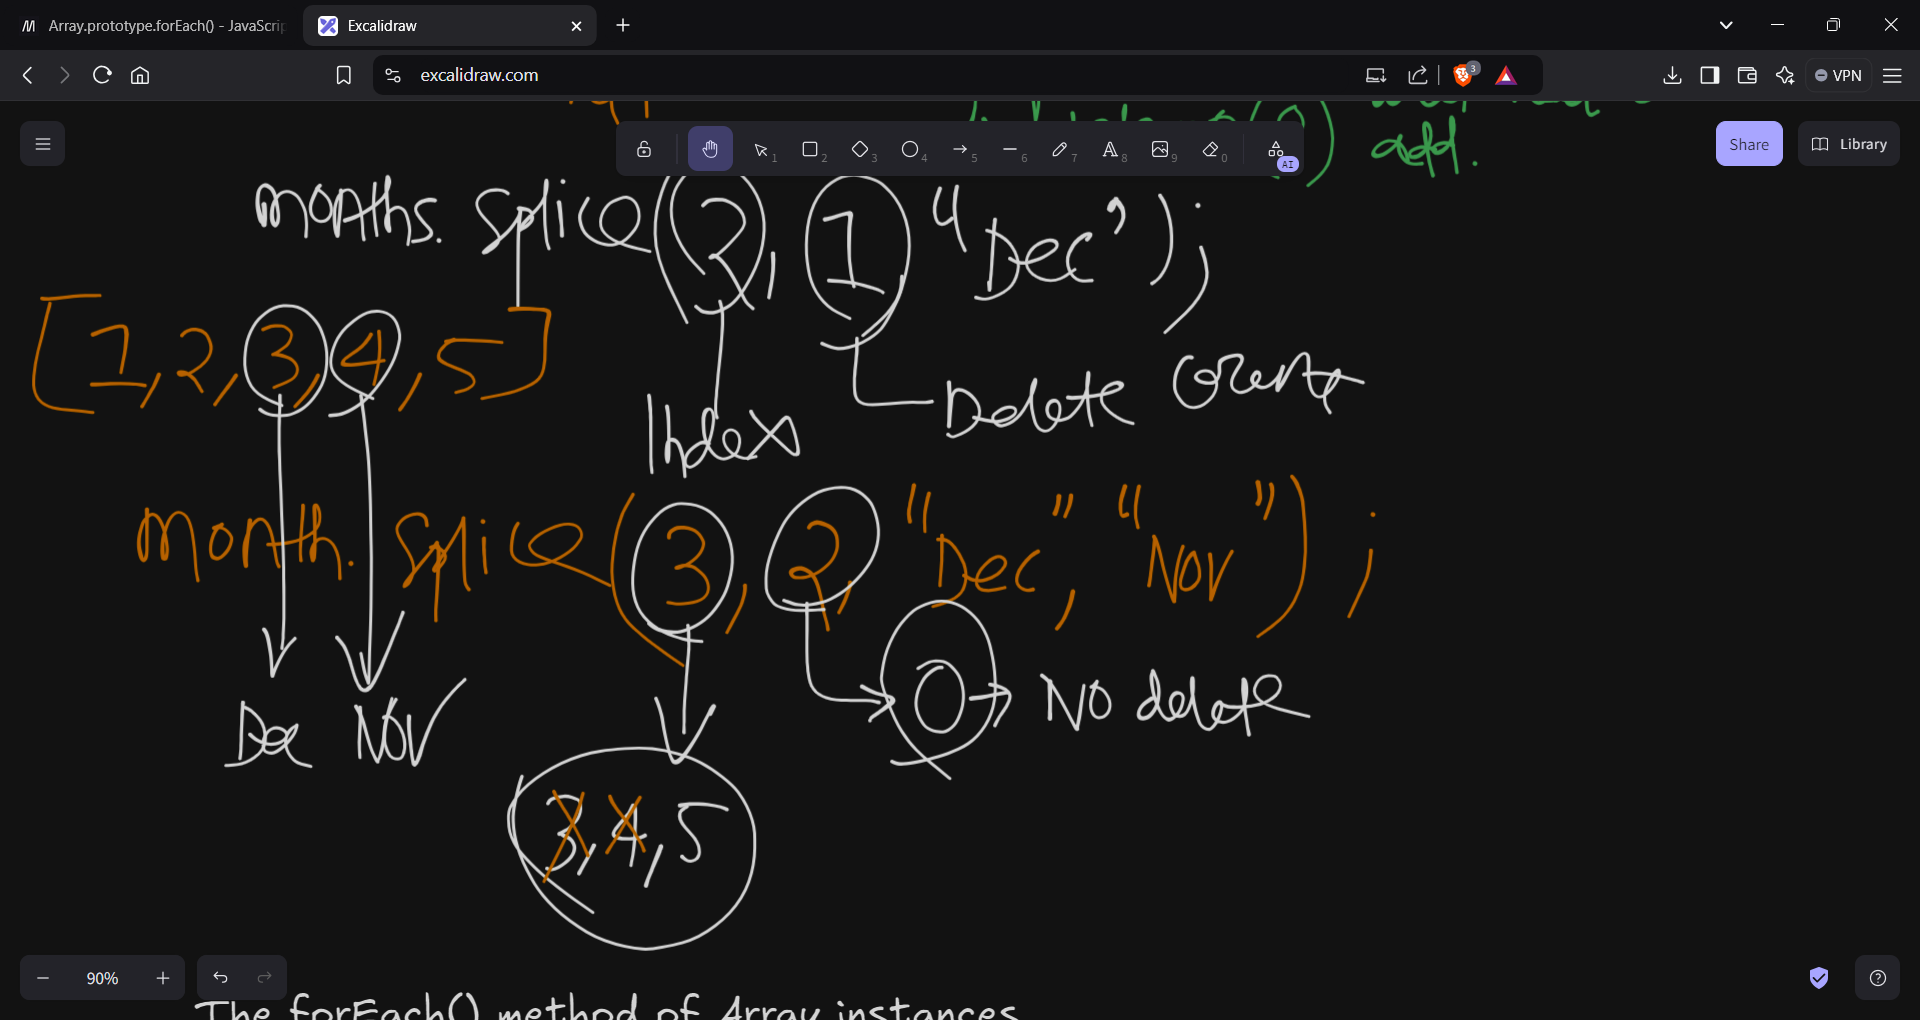 Array.prototype.forEach() - JavaScri
Excalidraw
excalidraw.com
3
VPN
add.
1 2 3 4 5 6 7 8 9 0 AI
Share
Library
months. splice(2, 1 "Dec");
[1, 2, 3, 4, 5]
Delete Count
Index
month. splice(3, 2, "Dec", "Nov");
Dec Nov
0 → No delete
3, 4, 5
90%
The forEach() method of Array instances